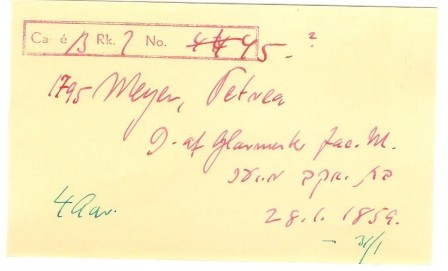 Ca é 13 Rk. 7 No. 45.- 2
1795 Meyer, Petrea
D. af Glarmestr Jac. M.
בת יעקב
28.1.1859.
4 Aar.
- 31/1